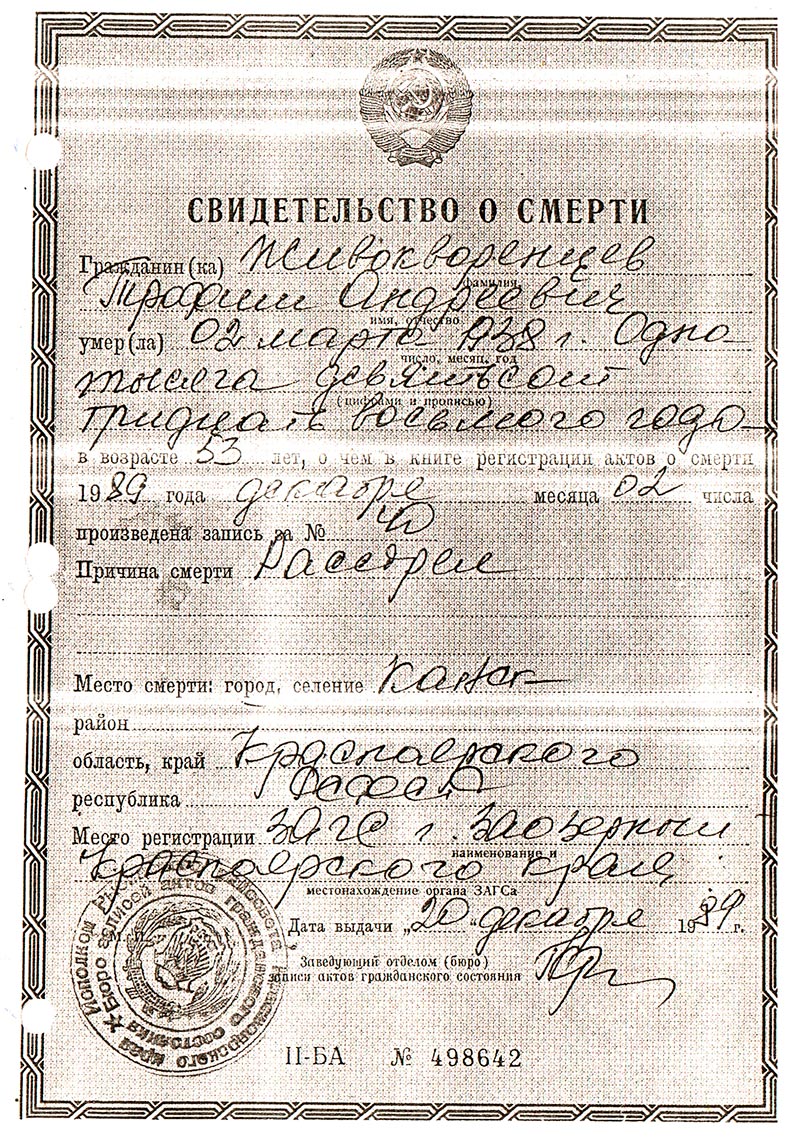 СВИДЕТЕЛЬСТВО О СМЕРТИ
Гражданин(ка) Живокворенцев
фамилия
Трофим Андреевич
имя, отчество
умер(ла) 02 марта 1938 г. Одна
число, месяц, год
тысяча девятьсот
(цифрами и прописью)
тридцать восьмого года
в возрасте 53 лет, о чем в книге регистрации актов о смерти
1989 года декабря месяца 02 числа
произведена запись за № 40
Причина смерти Расстрел
Место смерти: город, селение Канск
район
область, край Красноярского
республика РСФСР
Место регистрации ЗАГС г. Заозерный
наименование и
Красноярского края
местонахождение органа ЗАГСа
Дата выдачи „20" декабря 1989 г.
Заведующий отделом (бюро)
записи актов гражданского состояния
II-БА № 498642